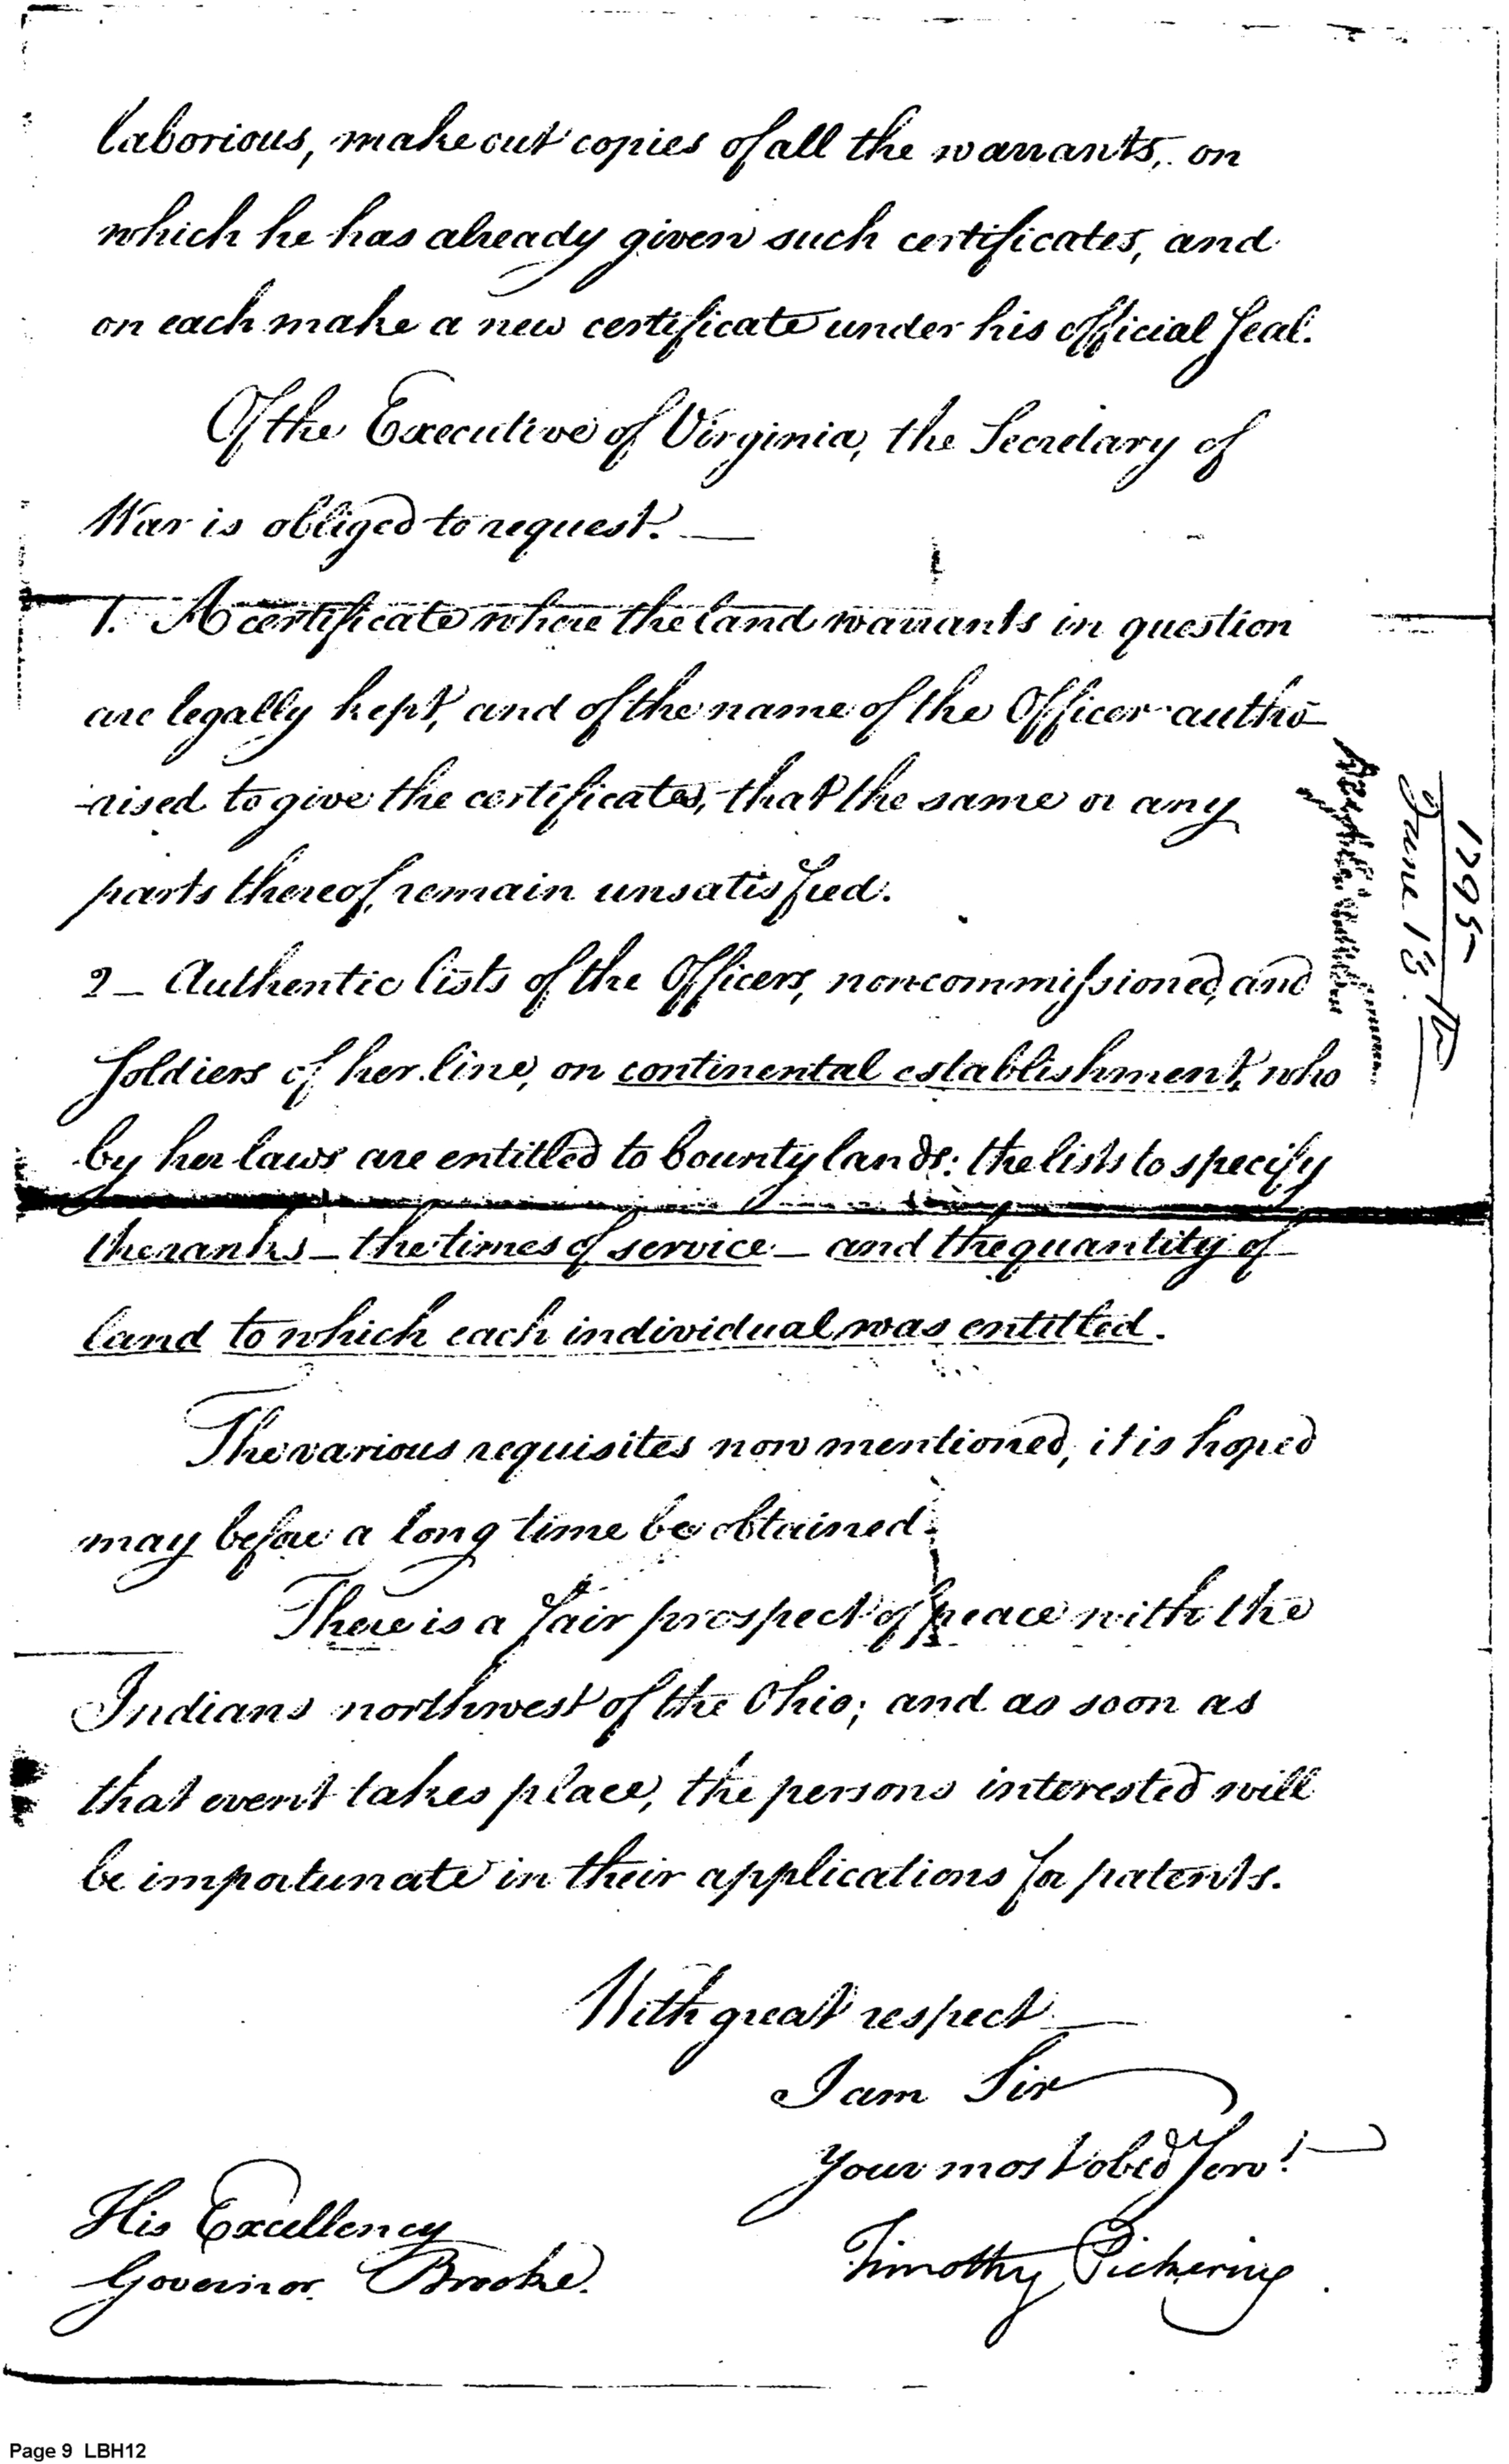 laborious, make out copies of all the warrants, on
which he has already given such certificates, and
on each make a new certificate under his official Seal.
Of the Executive of Virginia, the Secretary of
War is obliged to request. —
1. A certificate where the land warrants in question
are legally kept, and of the name of the Officer autho
-rised to give the certificates, that the same or any
parts thereof, remain unsatisfied.
2 — Authentic lists of the Officers, noncommissioned, and
Soldiers of her line, on continental establishment, who
by her laws are entitled to bounty lands: the lists to specify
the ranks — the times of service — and the quantity of
land to which each individual was entitled.
The various requisites now mentioned, it is hoped
may before a long time be obtained.
There is a fair prospect of peace with the
Indians northwest of the Ohio; and as soon as
that event takes place, the persons interested will
be importunate in their applications for patents.
With great respect —
I am Sir
Your most obed Servt
Timothy Pickering
His Excellency
Governor Brooke.
1795
June 18.
Page 9 LBH12